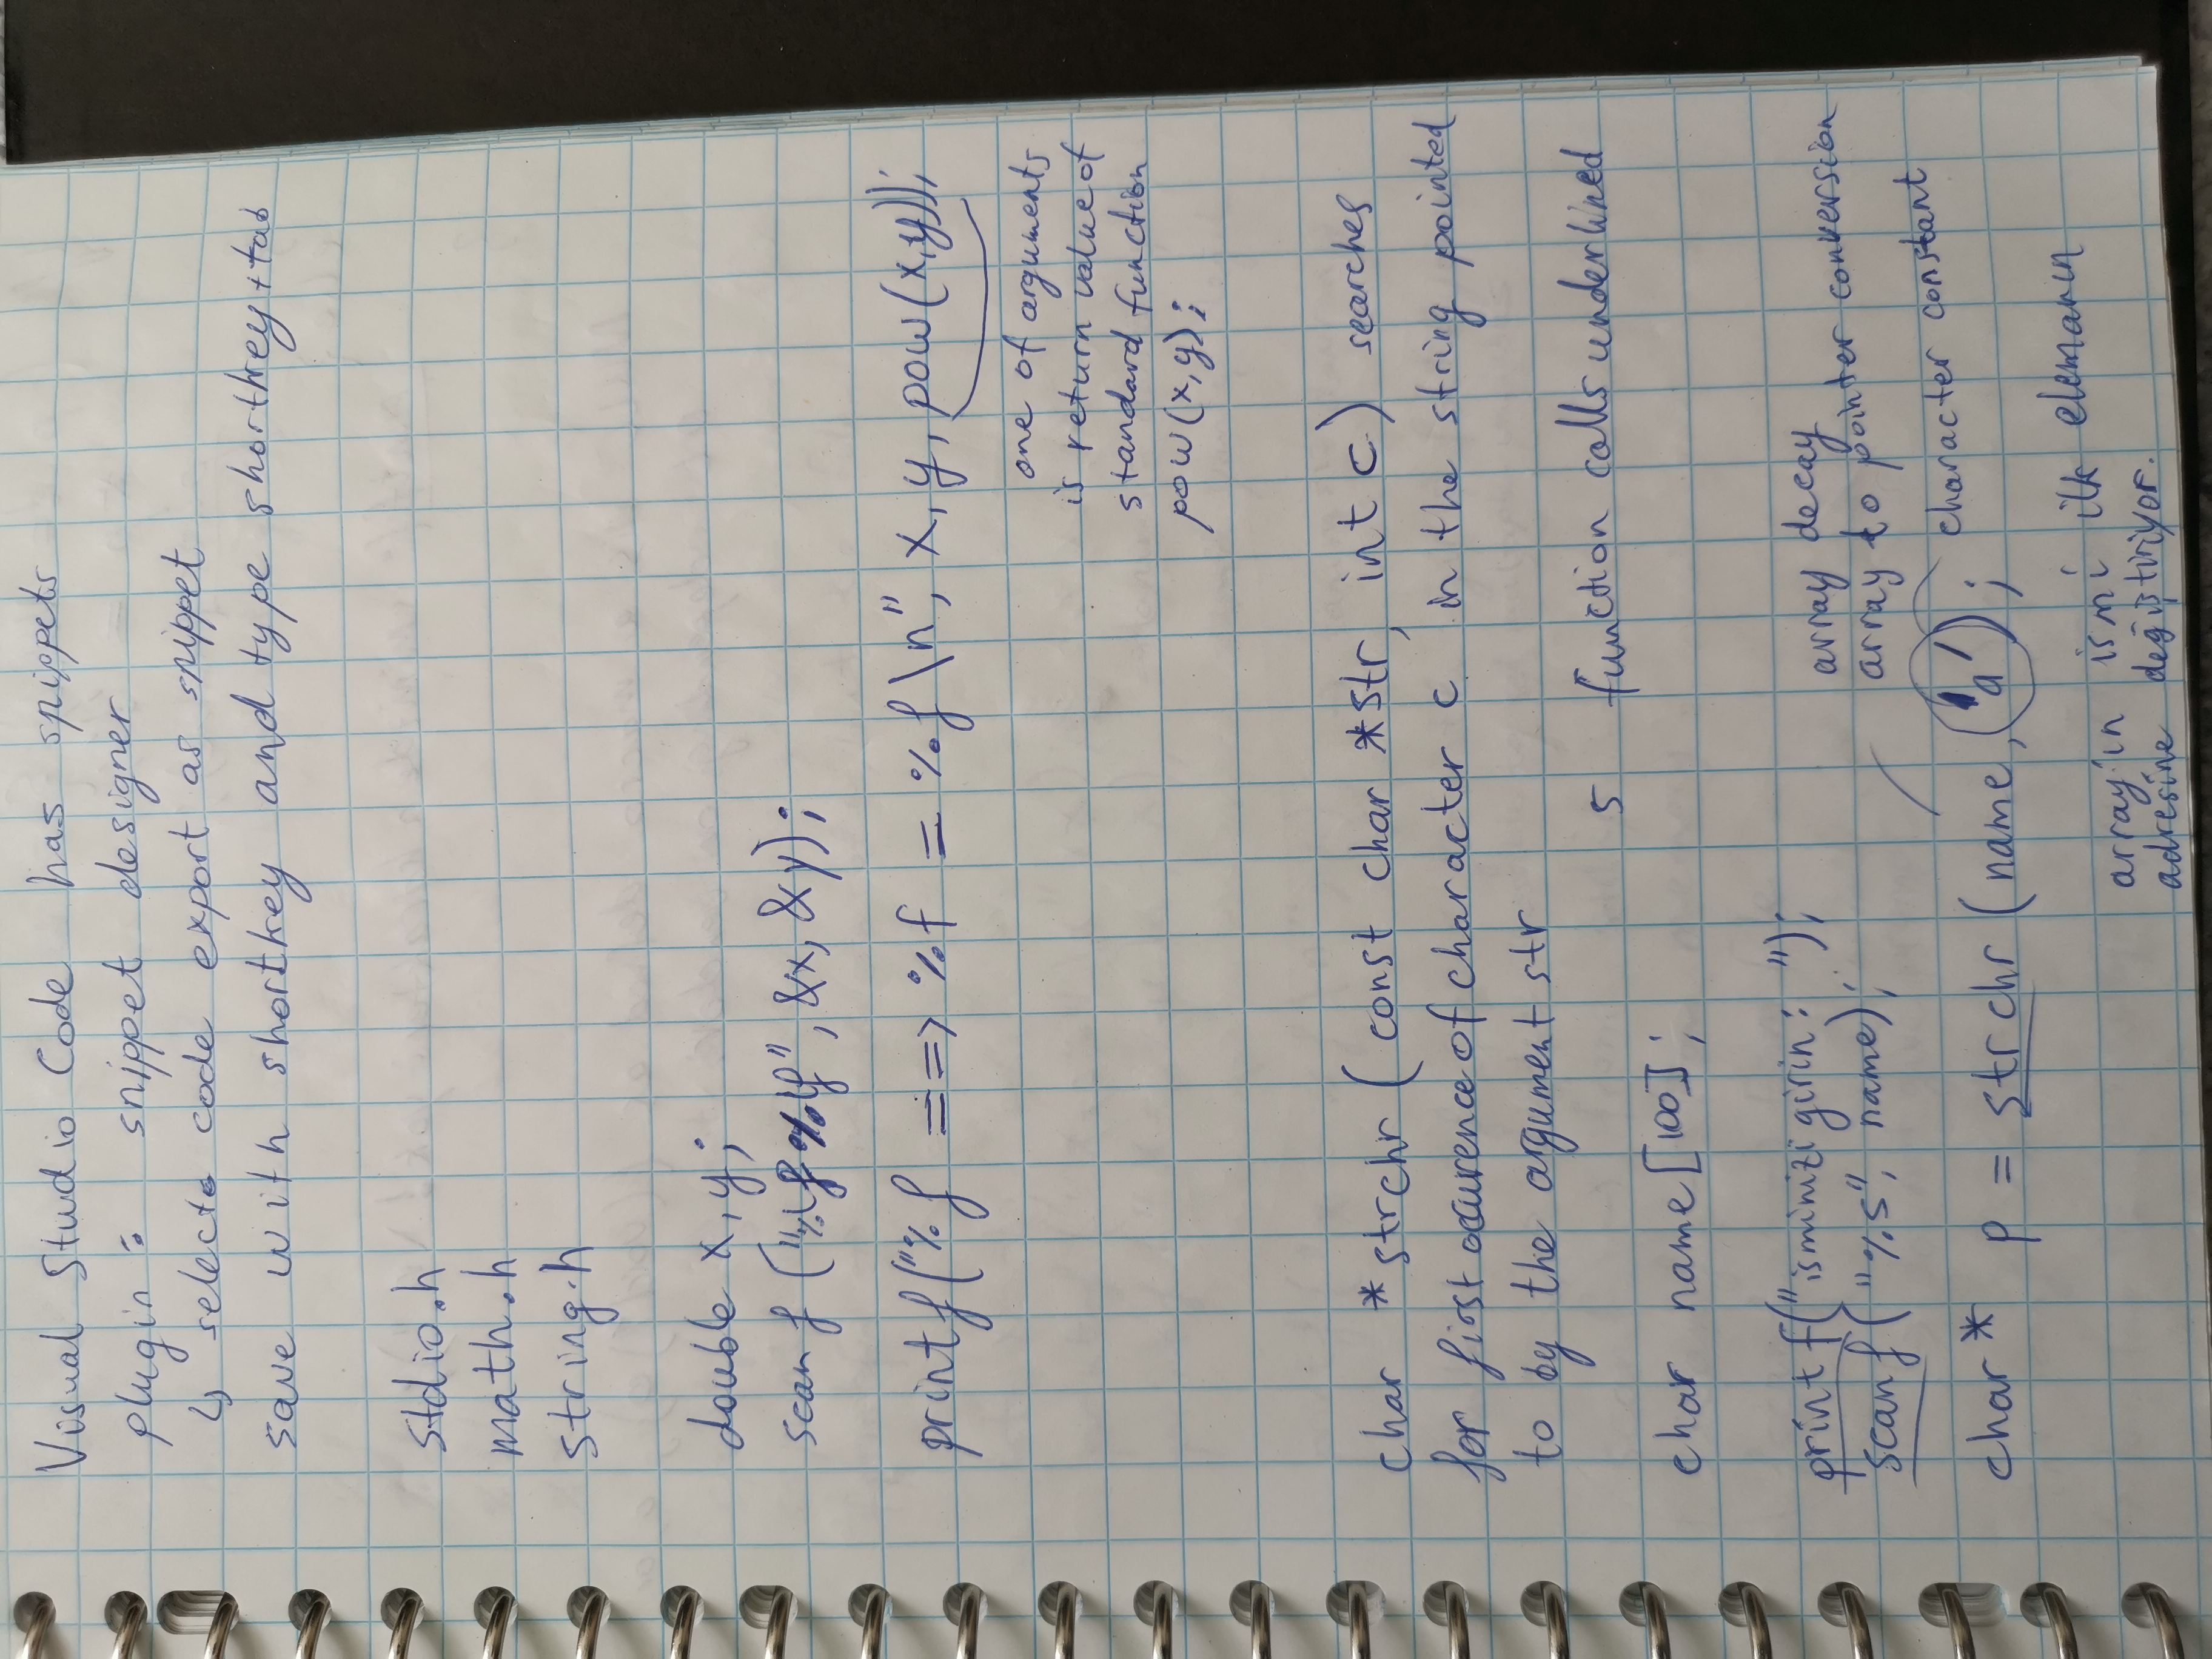 Visual Studio Code has snippets
plugin : snippet designer
↳ select code export as snippet
save with shortkey and type shortkey+tab
stdio.h
math.h
string.h
double x, y;
scanf ("%lf %lf", &x, &y);
printf("%f ==> %f = %f \n", x, y, pow(x,y));
one of arguments
is return value of
standard function
pow(x,y);
char *strchr ( const char *str, int c ) searches
for first occurence of character c in the string pointed
to by the argument str
5 function calls underlined
char name [100];
printf("isminizi girin: ");
scanf( "%s", name);
array decay
array to pointer conversion
character constant
char* p = strchr (name, 'a');
array'in ismi ilk elemanın
adresine değiştiriyor.